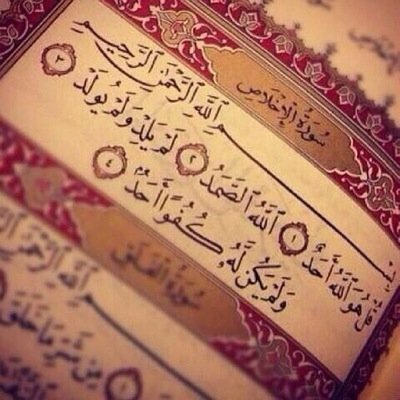 سُورَةُ الإِخْلَاصِ
بِسْمِ ٱللَّهِ ٱلرَّحْمَٰنِ ٱلرَّحِيمِ
قُلْ هُوَ ٱللَّهُ أَحَدٌ ١ ٱللَّهُ ٱلصَّمَدُ ٢ لَمْ يَلِدْ وَلَمْ يُولَدْ ٣
وَلَمْ يَكُن لَّهُۥ كُفُوًا أَحَدٌۢ ٤
سُورَةُ الفَلَقِ
بِسْمِ ٱللَّهِ ٱلرَّحْمَٰنِ
مِن شَرِّ مَا خَلَقَ